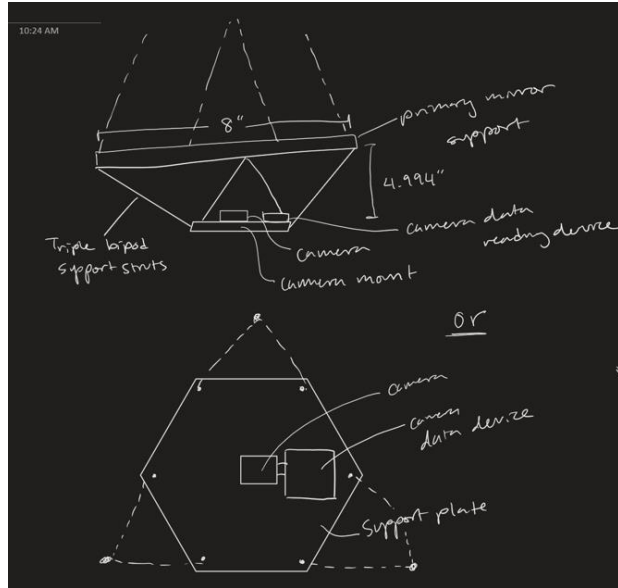 10:24 AM
8"
primary mirror
support
4.994"
Triple bipod
support struts
camera data
reading device
camera
camera mount
or
camera
camera
data device
Support plate